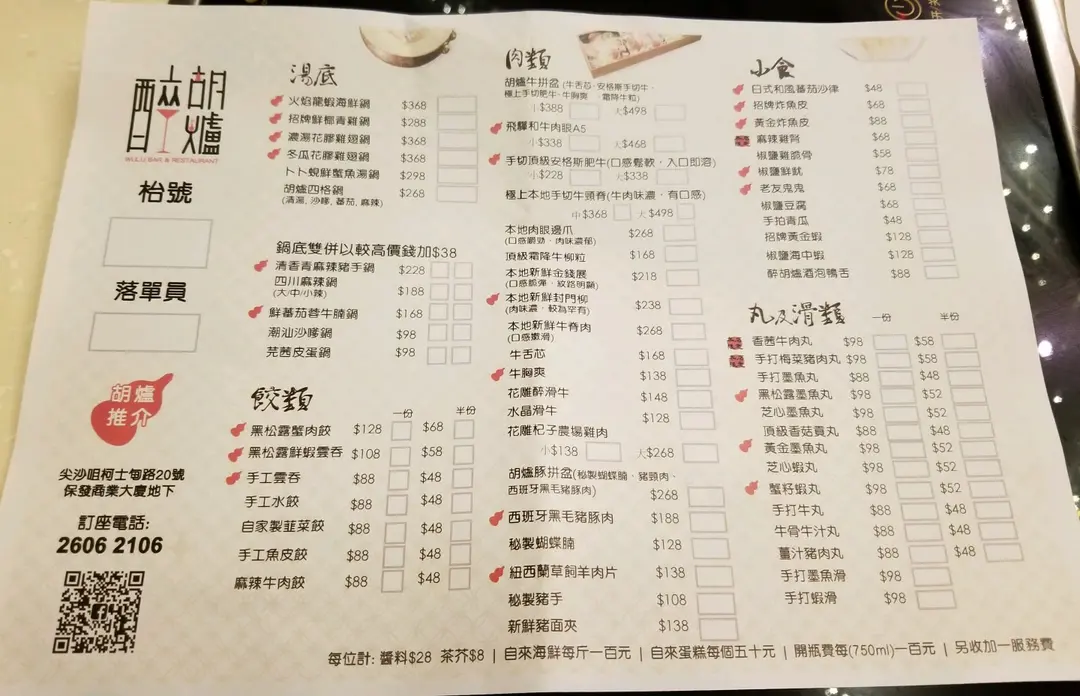 醉胡爐
WULU BAR & RESTAURANT
枱號
落單員
胡爐
推介
尖沙咀柯士甸路20號
保發商業大廈地下
訂座電話:
2606 2106
湯底
火焰龍蝦海鮮鍋 $368
招牌鮮椰青雞鍋 $288
濃湯花膠雞翅鍋 $368
冬瓜花膠雞翅鍋 $368
卜卜蜆鮮蟹魚湯鍋 $298
胡爐四格鍋 $268
(清湯, 沙嗲, 蕃茄, 麻辣)
鍋底雙併以較高價錢加$38
清香青麻辣豬手鍋 $228
四川麻辣鍋 $188
(大/中/小辣)
鮮蕃茄蓉牛腩鍋 $168
潮汕沙嗲鍋 $98
芫茜皮蛋鍋 $98
餃類
一份 半份
黑松露蟹肉餃 $128 $68
黑松露鮮蝦雲吞 $108 $58
手工雲吞 $88 $48
手工水餃 $88 $48
自家製韮菜餃 $88 $48
手工魚皮餃 $88 $48
麻辣牛肉餃 $88 $48
肉類
胡爐牛拼盆 (牛舌芯, 安格斯手切牛,
極上手切肥牛, 牛胸爽, 霜降牛粒)
小$388 大$498
飛驒和牛肉眼A5
小$338 大$468
手切頂級安格斯肥牛(口感鬆軟, 入口即溶)
小$228 大$338
極上本地手切牛頸脊(牛肉味濃, 有口感)
中$368 大$498
本地肉眼邊爪 $268
(口感嚼勁, 肉味濃郁)
頂級霜降牛柳粒 $168
本地新鮮金錢展 $218
(口感脆彈, 紋路明顯)
本地新鮮封門柳 $238
(肉味濃, 較為罕有)
本地新鮮牛脊肉 $268
(口感嫩滑)
牛舌芯 $168
牛胸爽 $138
花雕醉滑牛 $148
水晶滑牛 $128
花雕杞子農場雞肉
小$138 大$268
胡爐豚拼盆(秘製蝴蝶腩, 豬頸肉,
西班牙黑毛豬豚肉) $268
西班牙黑毛豬豚肉 $188
秘製蝴蝶腩 $128
紐西蘭草飼羊肉片 $138
秘製豬手 $108
新鮮豬面夾 $138
小食
日式和風蕃茄沙律 $48
招牌炸魚皮 $68
黃金炸魚皮 $88
麻辣雞腎 $68
椒鹽雞脆骨 $58
椒鹽鮮魷 $78
老友鬼鬼 $68
椒鹽豆腐 $68
手拍青瓜 $48
招牌黃金蝦 $128
椒鹽海中蝦 $128
醉胡爐酒泡鴨舌 $88
丸及滑類 一份 半份
香茜牛肉丸 $98 $58
手打梅菜豬肉丸 $98 $58
手打墨魚丸 $88 $48
黑松露墨魚丸 $98 $52
芝心墨魚丸 $98 $52
頂級香菇貢丸 $88 $48
黃金墨魚丸 $98 $52
芝心蝦丸 $98 $52
蟹籽蝦丸 $98 $52
手打牛丸 $88 $48
牛骨牛汁丸 $88 $48
薑汁豬肉丸 $88 $48
手打墨魚滑 $98
手打蝦滑 $98
每位計: 醬料$28 茶芥$8 | 自來海鮮每斤一百元 | 自來蛋糕每個五十元 | 開瓶費每(750ml)一百元 | 另收加一服務費